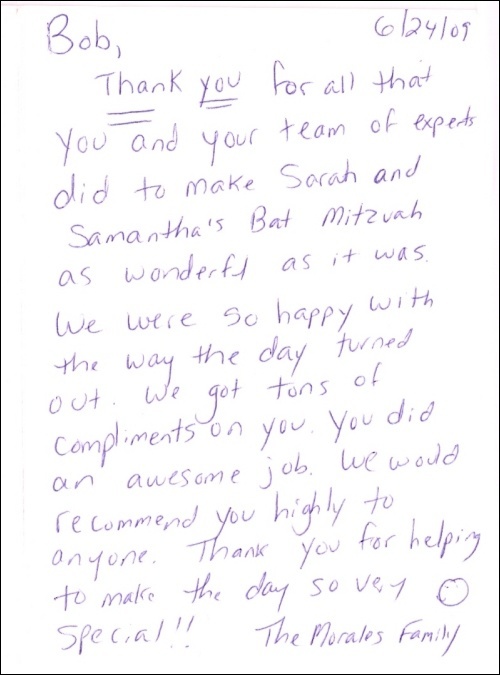 Bob,
6/24/09
Thank you for all that
you and your team of experts
did to make Sarah and
Samantha's Bat Mitzvah
as wonderfl as it was.
We were so happy with
the way the day turned
out. We got tons of
compliments on you. You did
an awesome job. We would
recommend you highly to
anyone. Thank you for helping
to make the day so very
special!! The Morales Family